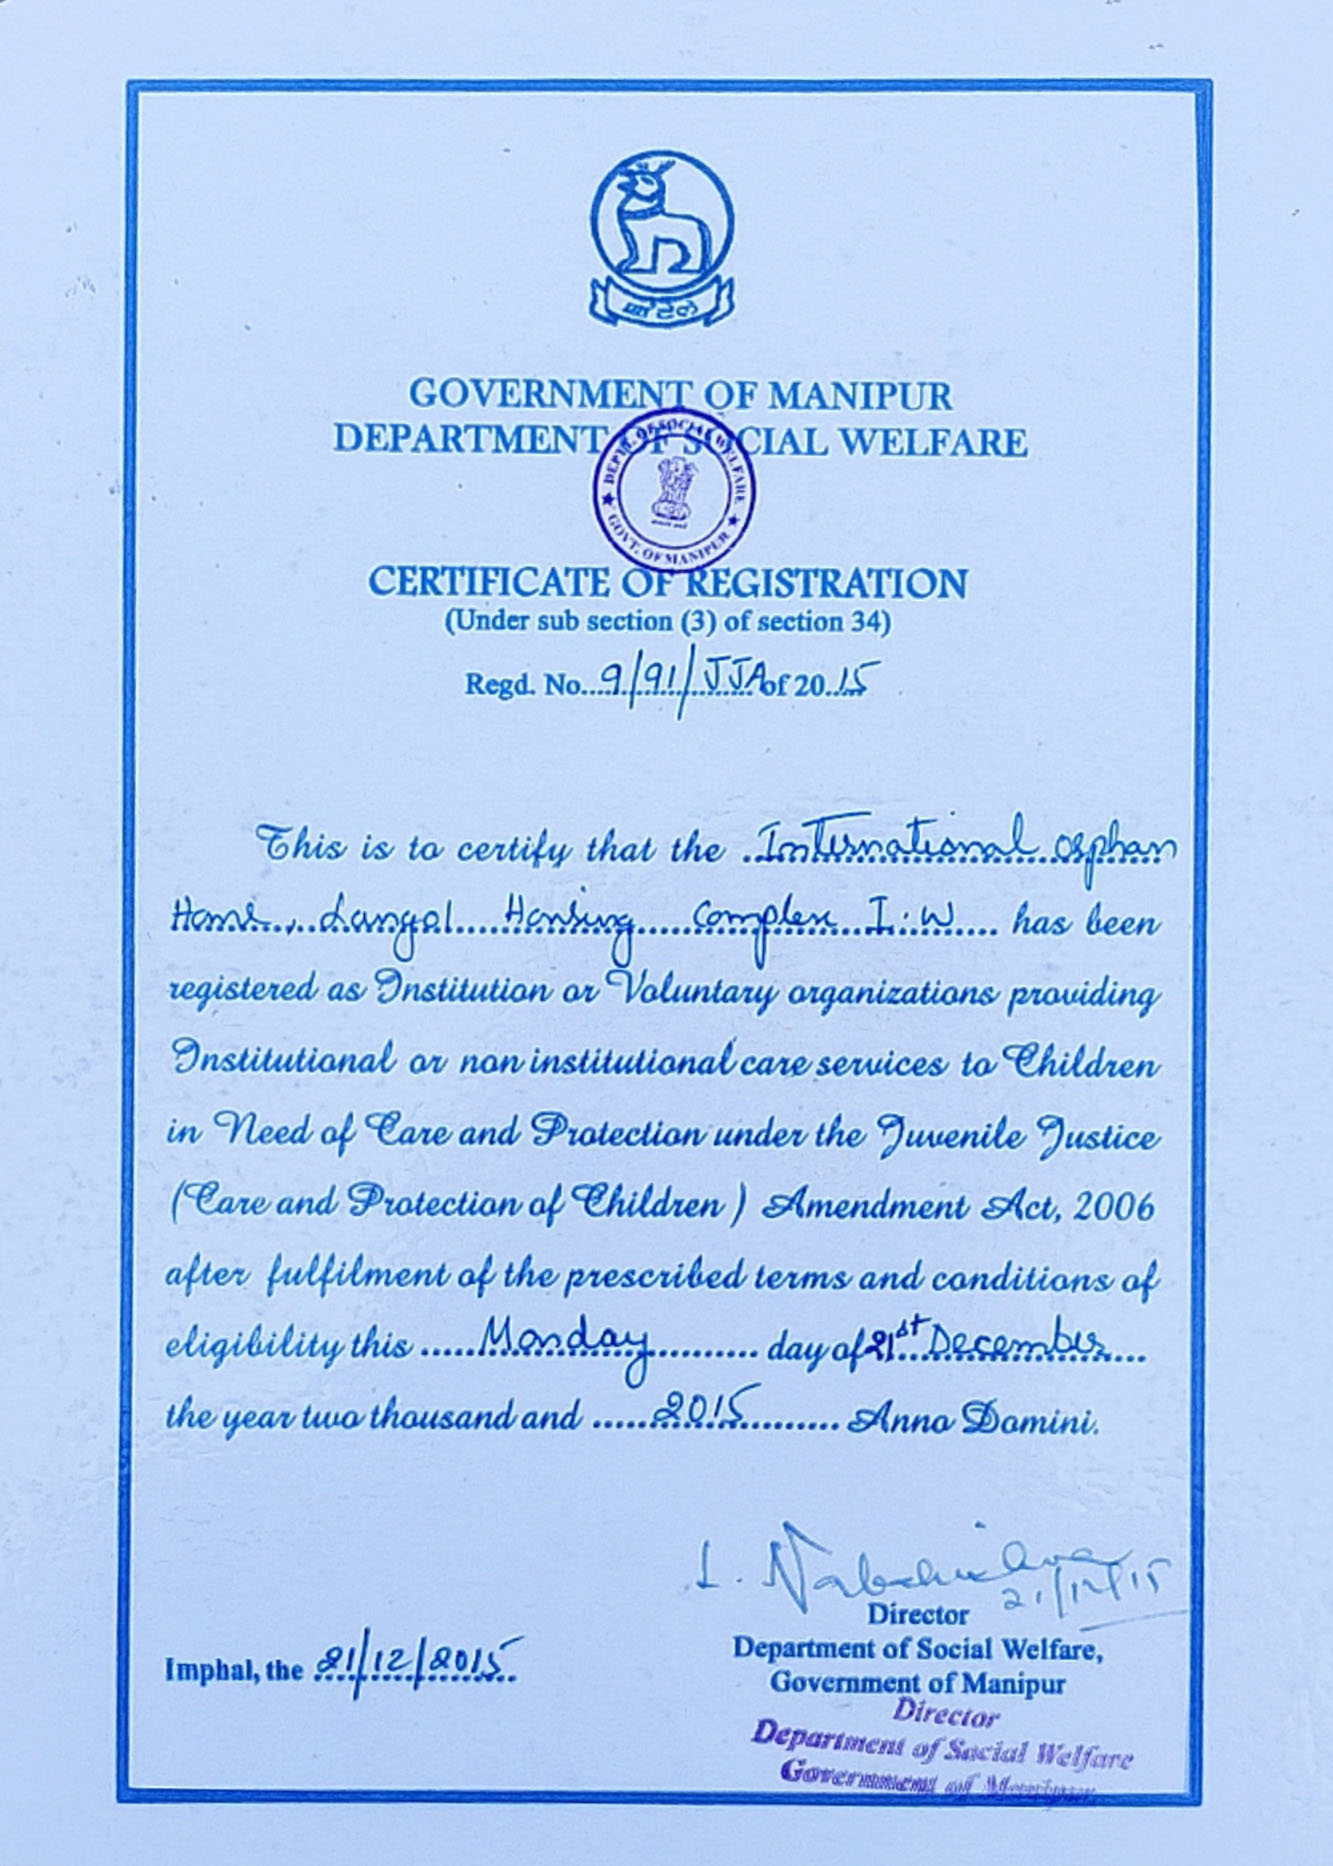 GOVERNMENT OF MANIPUR
DEPARTMENT OF SOCIAL WELFARE
DEPTT. OF SOCIAL WELFARE
GOVT. OF MANIPUR
CERTIFICATE OF REGISTRATION
(Under sub section (3) of section 34)
Regd. No...9/91/JJA of 20..15
This is to certify that the ..International orphan
Home, Langol Housing Complex I.W.... has been
registered as Institution or Voluntary organizations providing
Institutional or non institutional care services to Children
in Need of Care and Protection under the Juvenile Justice
(Care and Protection of Children ) Amendment Act, 2006
after fulfilment of the prescribed terms and conditions of
eligibility this ......Monday........... day of 21st December....
the year two thousand and ......2015........... Anno Domini.
21/12/15
Director
Department of Social Welfare,
Imphal, the 21/12/2015
Government of Manipur
Director
Department of Social Welfare
Government of Manipur